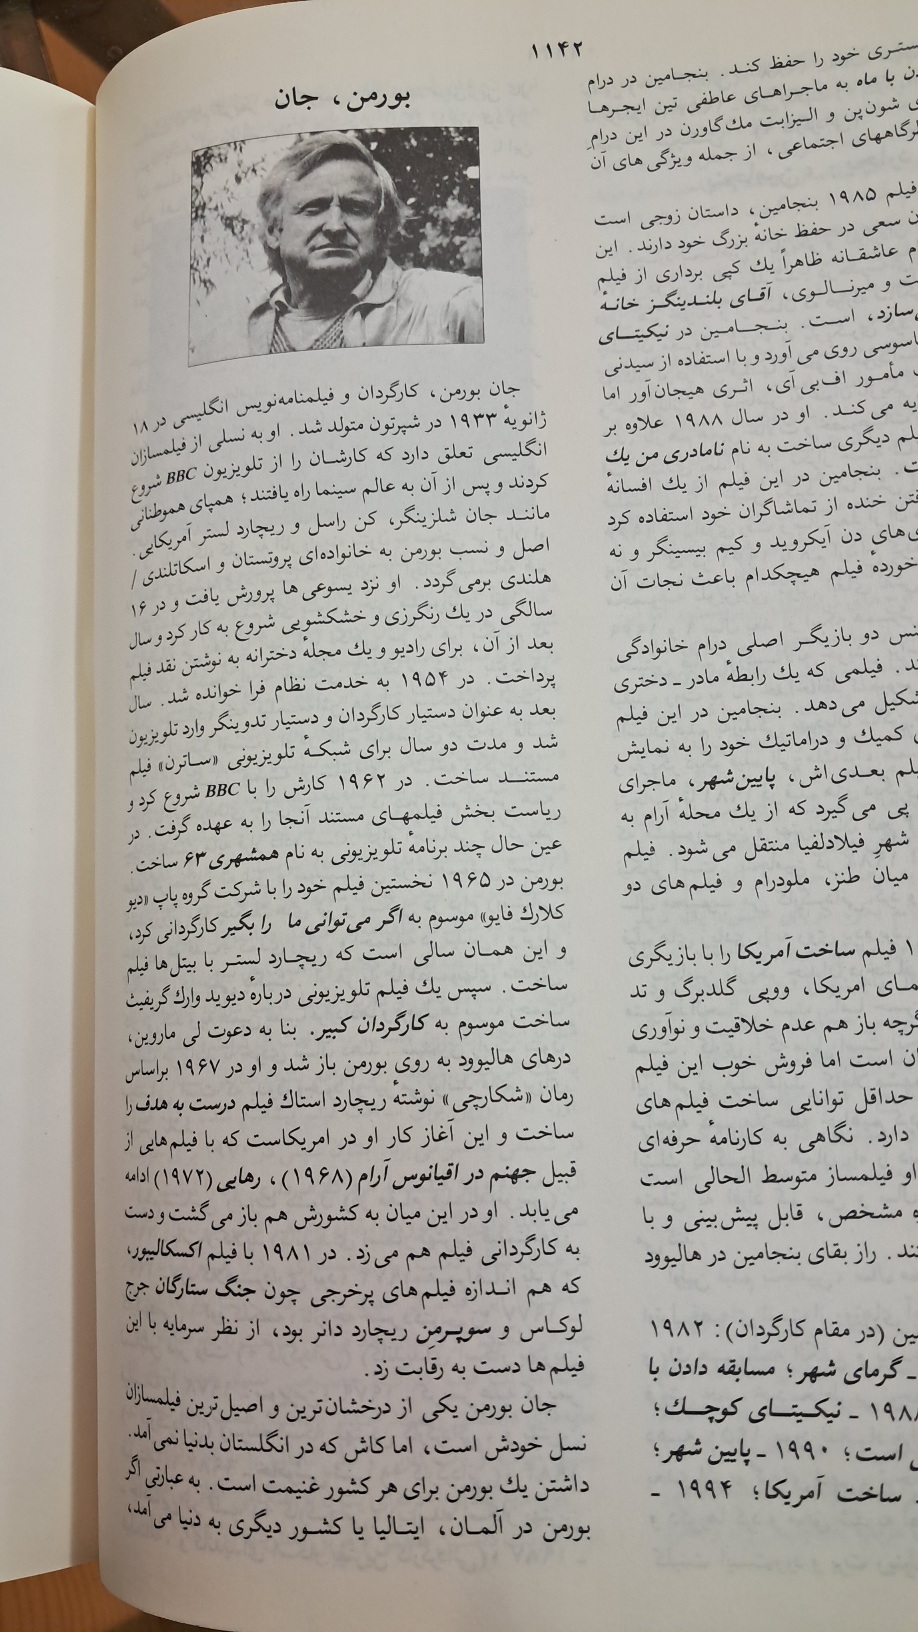 ۱۱۴۲
ستری خود را حفظ کند. بنجامین در درام
با ماه به ماجراهای عاطفی تین ایجرها
شون‌پن و الیزابت مك‌گاورن در این درام
اجتماعی، از جمله ویژگی‌های آن
فیلم ۱۹۸۵ بنجامین، داستان زوجی است
سعی در حفظ خانهٔ بزرگ خود دارند. این
عاشقانه ظاهراً یك کپی برداری از فیلم
و میرنالوی، آقای بلندینگز خانهٔ
است. بنجامین در نیکیتای
روی می‌آورد و با استفاده از سیدنی
مأمور اف‌بی‌آی، اثری هیجان‌آور اما
می‌کند. او در سال ۱۹۸۸ علاوه بر
دیگری ساخت به نام نامادری من یك
بنجامین در این فیلم از یك افسانهٔ
خنده از تماشاگران خود استفاده کرد
دن آیکروید و کیم بیسینگر و نه
فیلم هیچکدام باعث نجات آن
دو بازیگر اصلی درام خانوادگی
فیلمی که یك رابطهٔ مادر ـ دختری
می‌دهد. بنجامین در این فیلم
کمیك و دراماتیك خود را به نمایش
بعدی‌اش، پایین‌شهر، ماجرای
پی می‌گیرد که از یك محلهٔ آرام به
شهرِ فیلادلفیا منتقل می‌شود. فیلم
میان طنز، ملودرام و فیلم‌های دو
فیلم ساخت آمریکا را با بازیگری
امریکا، ووپی گلدبرگ و تد
باز هم عدم خلاقیت و نوآوری
است اما فروش خوب این فیلم
حداقل توانایی ساخت فیلم‌های
دارد. نگاهی به کارنامهٔ حرفه‌ای
او فیلمساز متوسط الحالی است
مشخص، قابل پیش‌بینی و با
راز بقای بنجامین در هالیوود
(در مقام کارگردان): ۱۹۸۲
ـ گرمای شهر؛ مسابقه دادن با
ـ نیکیتای کوچك؛
است؛ ۱۹۹۰ ـ پایین شهر؛
ساخت آمریکا؛ ۱۹۹۴ ـ
بورمن، جان
جان بورمن، کارگردان و فیلمنامه‌نویس انگلیسی در ۱۸
ژانویهٔ ۱۹۳۳ در شپرتون متولد شد. او به نسلی از فیلمسازان
انگلیسی تعلق دارد که کارشان را از تلویزیون BBC شروع
کردند و پس از آن به عالم سینما راه یافتند؛ همپای هموطنانی
مانند جان شلزینگر، کن راسل و ریچارد لستر آمریکایی.
اصل و نسب بورمن به خانواده‌ای پروتستان و اسکاتلندی /
هلندی برمی‌گردد. او نزد یسوعی‌ها پرورش یافت و در ۱۶
سالگی در یك رنگرزی و خشکشویی شروع به کار کرد و سال
بعد از آن، برای رادیو و یك مجلهٔ دخترانه به نوشتن نقد فیلم
پرداخت. در ۱۹۵۴ به خدمت نظام فرا خوانده شد. سال
بعد به عنوان دستیار کارگردان و دستیار تدوینگر وارد تلویزیون
شد و مدت دو سال برای شبکهٔ تلویزیونی «ساترن» فیلم
مستند ساخت. در ۱۹۶۲ کارش را با BBC شروع کرد و
ریاست بخش فیلمهای مستند آنجا را به عهده گرفت. در
عین حال چند برنامهٔ تلویزیونی به نام همشهری ۶۳ ساخت.
بورمن در ۱۹۶۵ نخستین فیلم خود را با شرکت گروه پاپ «دیو
کلارك فایو» موسوم به اگر می‌توانی ما را بگیر کارگردانی کرد،
و این همان سالی است که ریچارد لستر با بیتل‌ها فیلم
ساخت. سپس یك فیلم تلویزیونی دربارهٔ دیوید وارك گریفیث
ساخت موسوم به کارگردان کبیر. بنا به دعوت لی ماروین،
درهای هالیوود به روی بورمن باز شد و او در ۱۹۶۷ براساس
رمان «شکارچی» نوشتهٔ ریچارد استاك فیلم درست به هدف را
ساخت و این آغاز کار او در امریکاست که با فیلم‌هایی از
قبیل جهنم در اقیانوس آرام (۱۹۶۸)، رهایی (۱۹۷۲) ادامه
می‌یابد. او در این میان به کشورش هم باز می‌گشت و دست
به کارگردانی فیلم هم می‌زد. در ۱۹۸۱ با فیلم اکسکالیبور،
که هم اندازه فیلم‌های پرخرجی چون جنگ ستارگان جرج
لوکاس و سوپرمن ریچارد دانر بود، از نظر سرمایه با این
فیلم‌ها دست به رقابت زد.
جان بورمن یکی از درخشان‌ترین و اصیل‌ترین فیلمسازان
نسل خودش است، اما کاش که در انگلستان بدنیا نمی‌آمد.
داشتن یك بورمن برای هر کشور غنیمت است. به عبارتی اگر
بورمن در آلمان، ایتالیا یا کشور دیگری به دنیا می‌آمد،